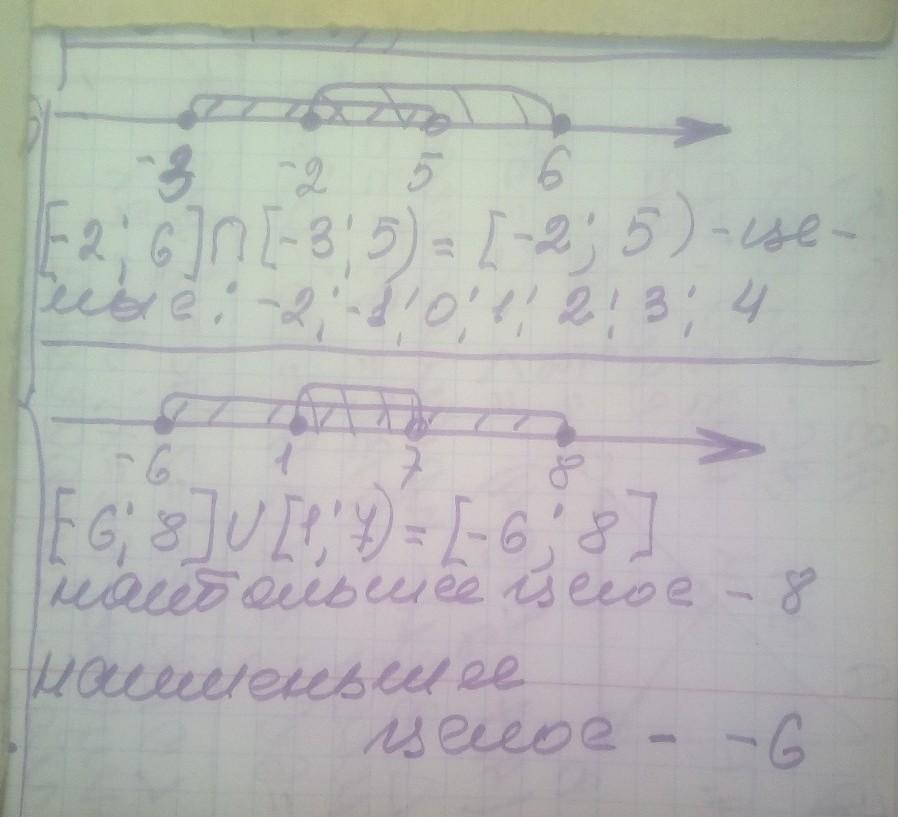 -3 -2 5 6
[-2; 6]∩[-3; 5) = [-2; 5) - це-
лые: -2; -1; 0; 1; 2; 3; 4
-6 1 7 8
[-6; 8]∪[1; 7) = [-6; 8]
наибольшее целое - 8
наименьшее
целое - -6